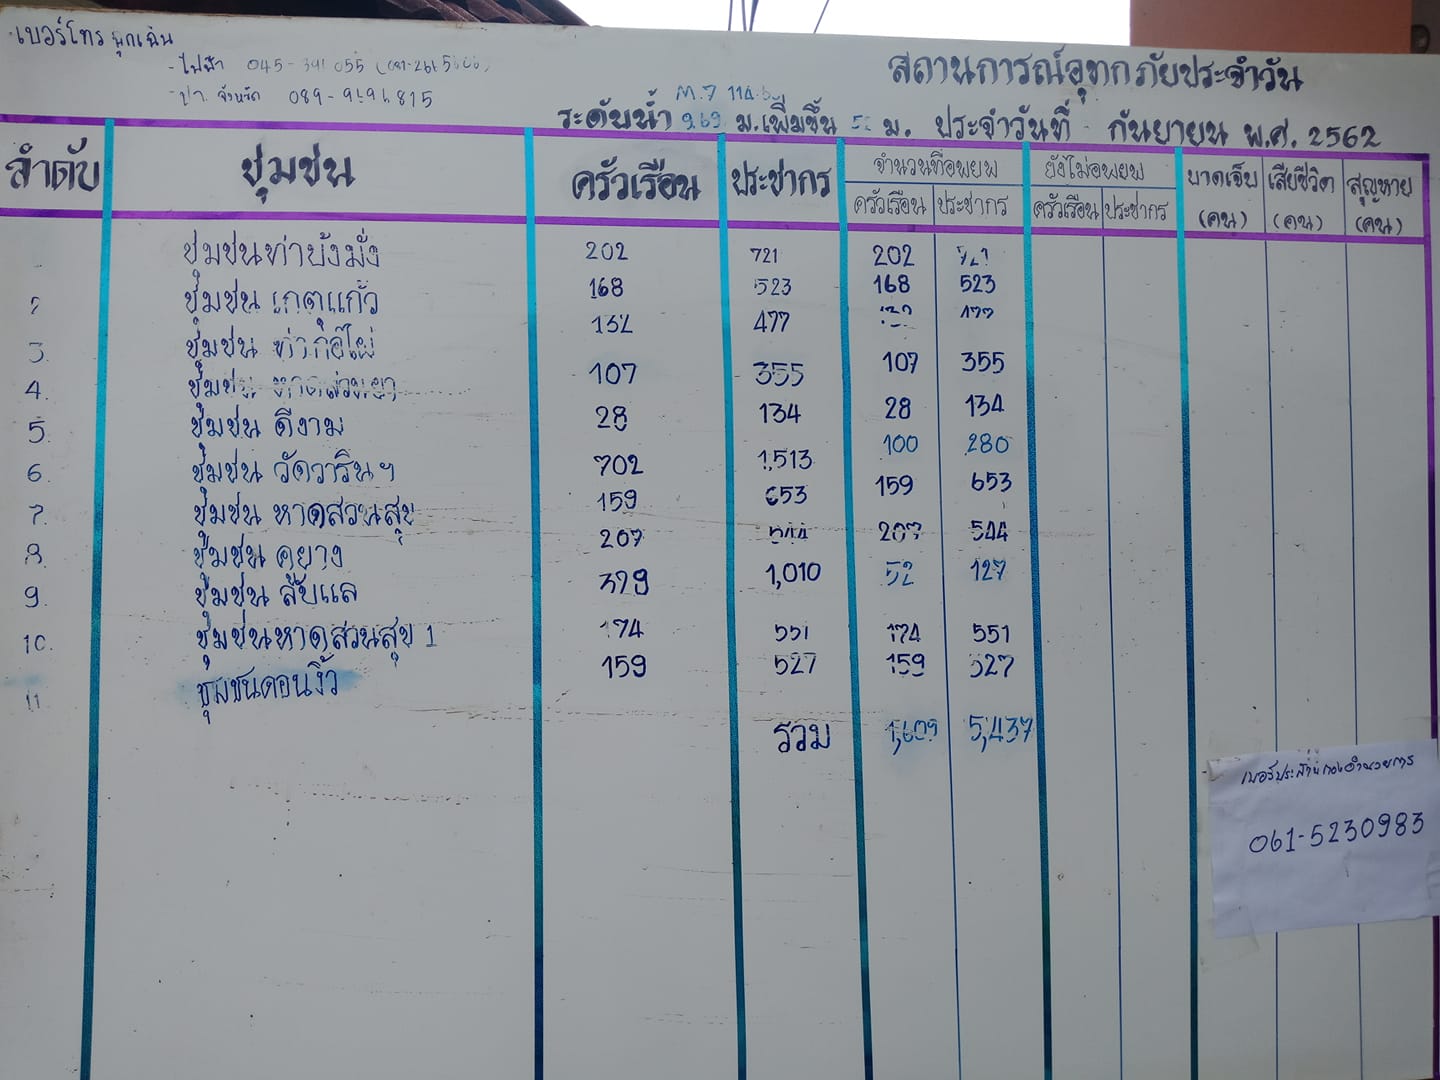 เบอร์โทร ฉุกเฉิน
- ไฟฟ้า 045-391055
- ปภ. จังหวัด
สถานการณ์อุทกภัยประจำวัน
M.7
ระดับน้ำ ม.เพิ่มขึ้น ม. ประจำวันที่ กันยายน พ.ศ. 2562
ลำดับ ชุมชน ครัวเรือน ประชากร จำนวนที่อพยพ ยังไม่อพยพ บาดเจ็บ เสียชีวิต สูญหาย
ครัวเรือน ประชากร ครัวเรือน ประชากร (คน) (คน) (คน)
ชุมชนท่าบ้งมั่ง 202 721 202 721
2 ชุมชน เกตุแก้ว 168 523 168 523
3. ชุมชน ท่ากอไผ่ 132 477 132 477
4. ชุมชน หาดสวนยา 107 355 107 355
5. ชุมชน ดีงาม 28 134 28 134
6. ชุมชน วัดวารินฯ 702 1,513 100 280
7. ชุมชน หาดสวนสุข 159 653 159 653
8. ชุมชน คูยาง 207 544 207 544
9. ชุมชน ลับแล 379 1,010 52 127
10. ชุมชนหาดสวนสุข 1 174 551 174 551
11 ชุมชนดอนงิ้ว 159 527 159 527
รวม 1,609 5,437
061-5230983